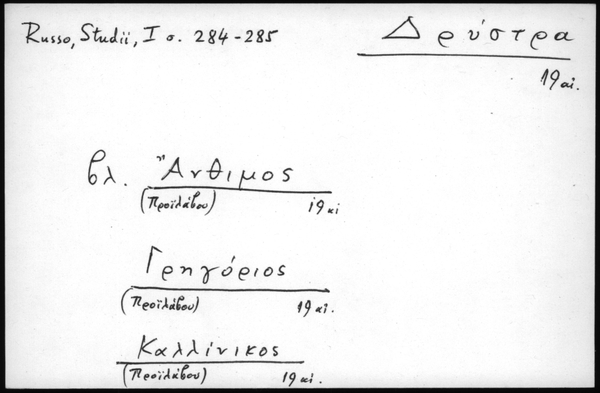 Russo, Studii, I σ. 284-285
Δρύστρα
19 αἰ.
βλ. Ἄνθιμος
(Προϊλάβου) 19 αἰ
Γρηγόριος
(Προϊλάβου) 19 αἰ.
Καλλίνικος
(Προϊλάβου) 19 αἰ.